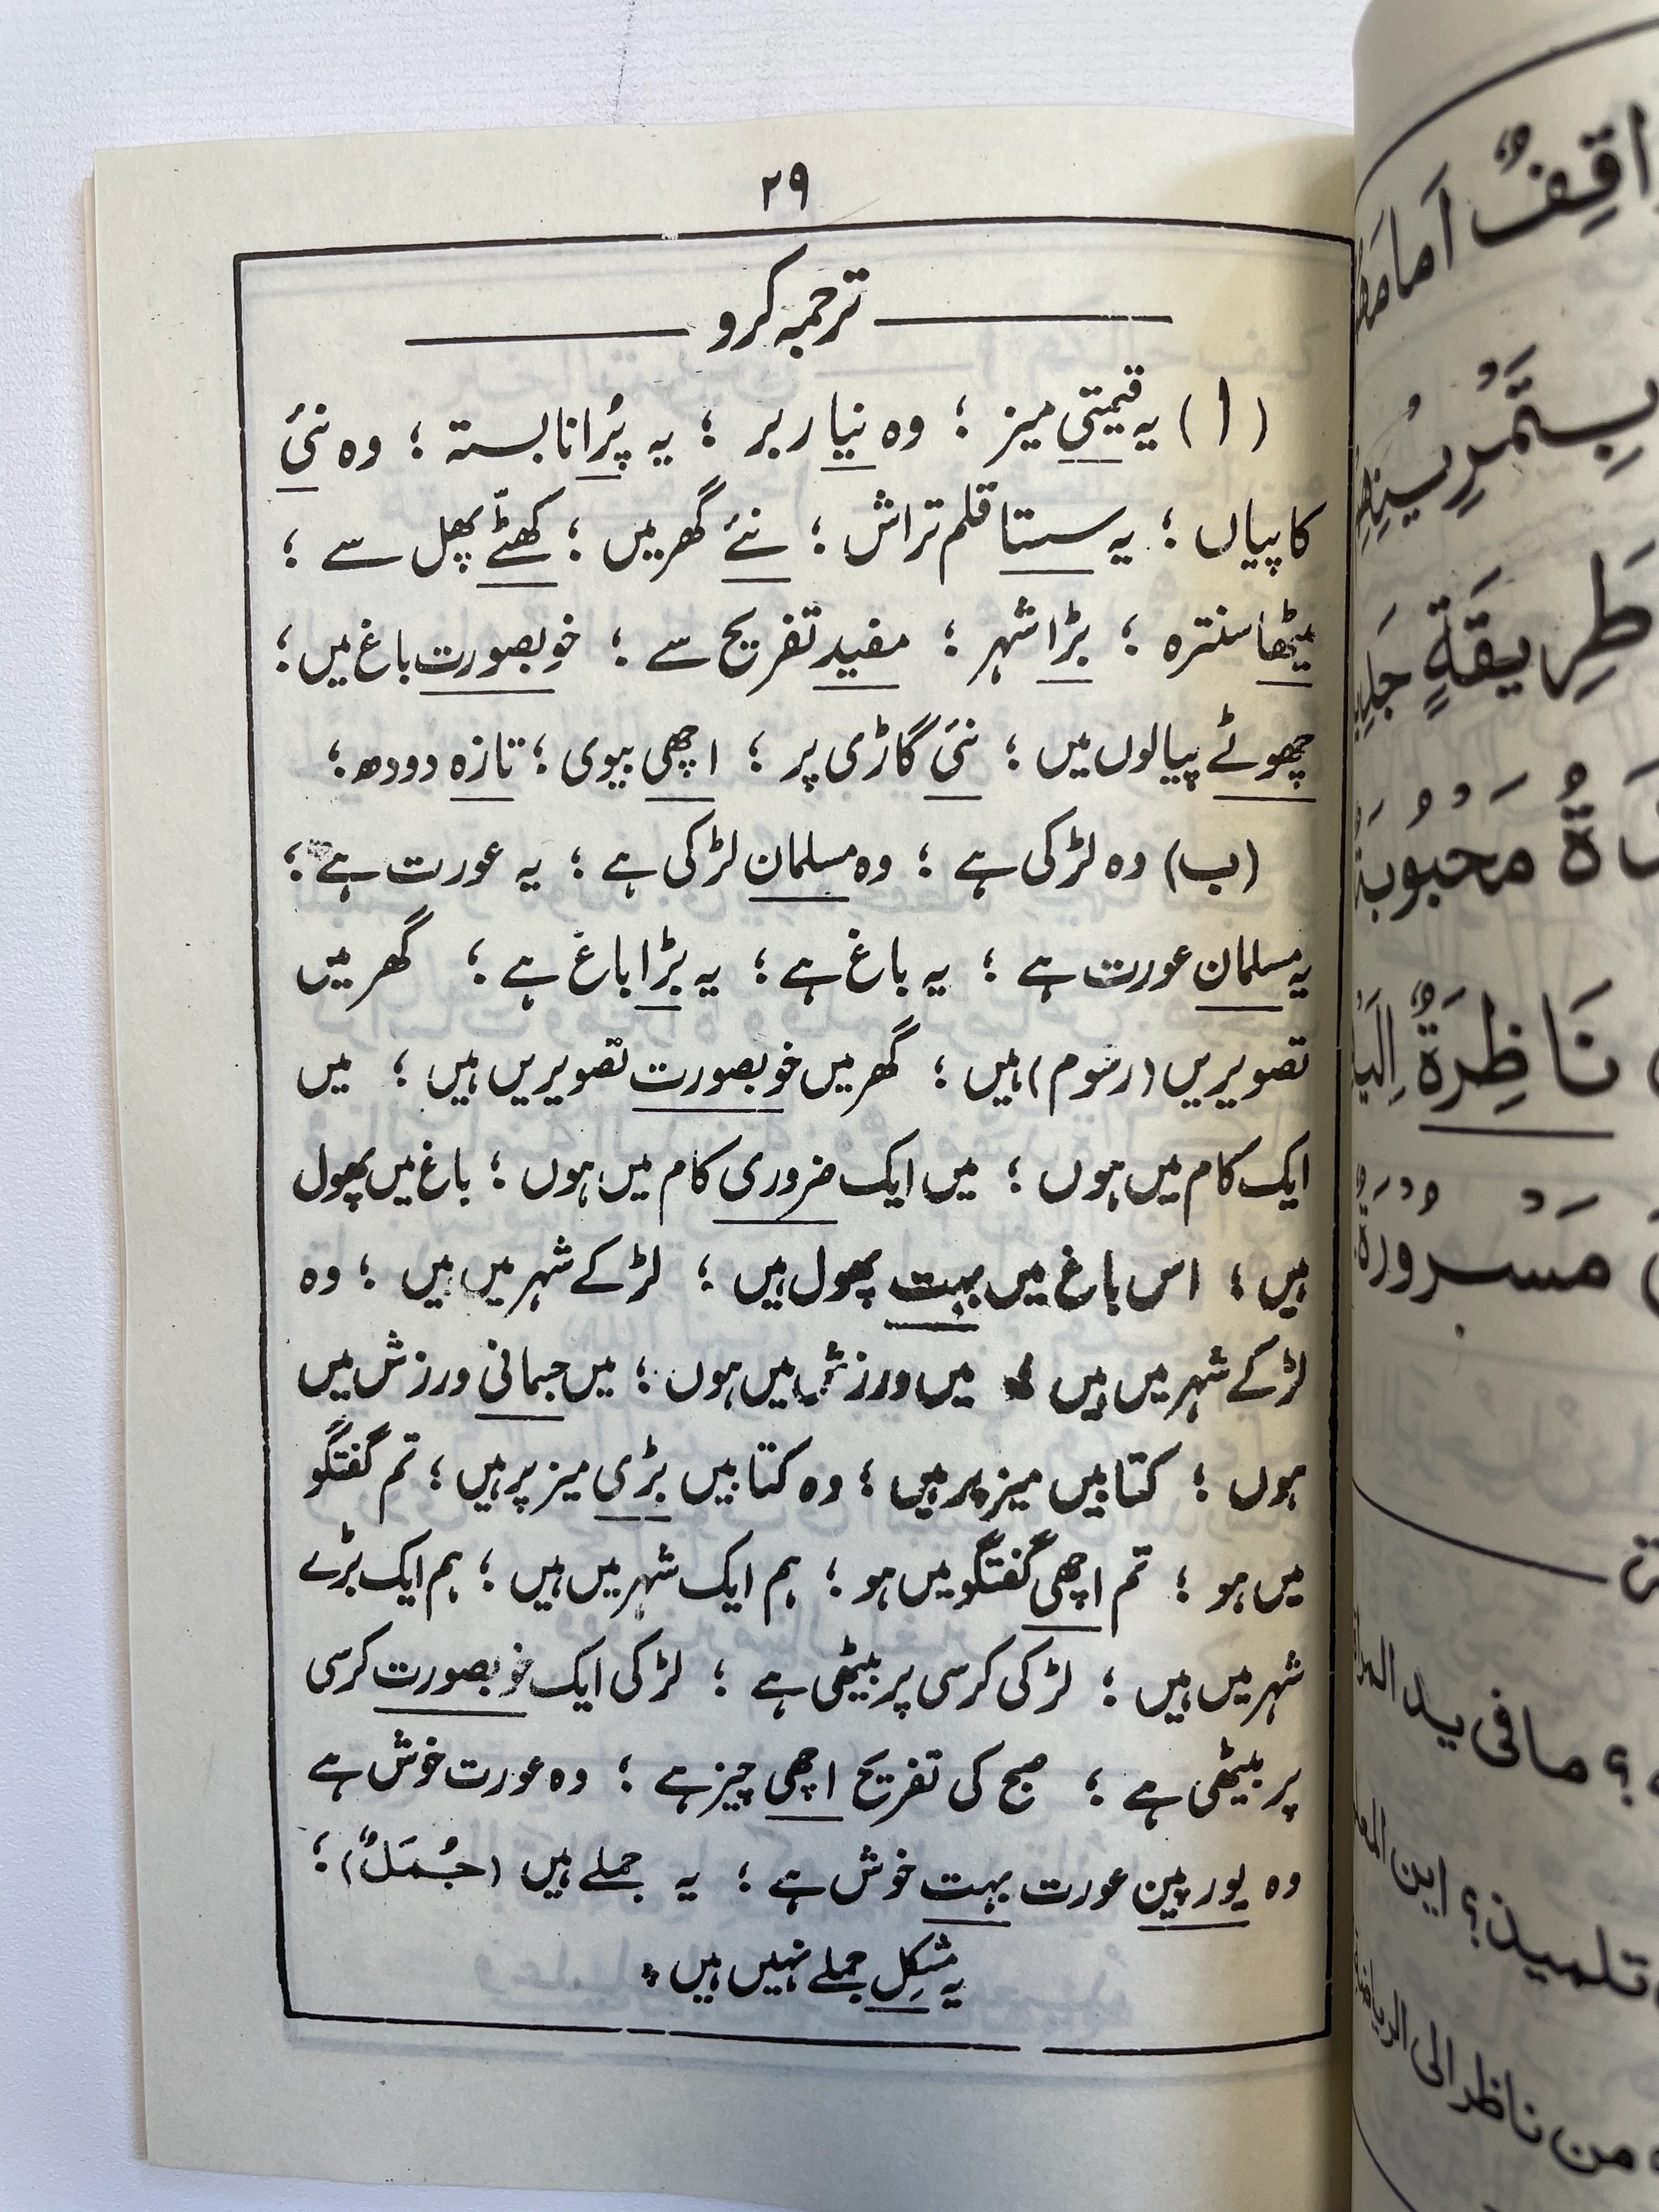 ۲۹
ترجمہ کرو
(ا) یہ قیمتی میز ؛ وہ نیا ربر ؛ یہ پُرانا بستہ ؛ وہ نئی
کاپیاں ؛ یہ سستا قلم تراش ؛ نئے گھر میں ؛ کھٹّے پھل سے ؛
میٹھا سنترہ ؛ بڑا شہر ؛ مفید تفریح سے ؛ خوبصورت باغ میں ؛
چھوٹے پیالوں میں ؛ نئی گاڑی پر ؛ اچھی بیوی ؛ تازہ دودھ ؛
(ب) وہ لڑکی ہے ؛ وہ مسلمان لڑکی ہے ؛ یہ عورت ہے ؛
یہ مسلمان عورت ہے ؛ یہ باغ ہے ؛ یہ بڑا باغ ہے ؛ گھر میں
تصویریں (رسوم) ہیں ؛ گھر میں خوبصورت تصویریں ہیں ؛ میں
ایک کام میں ہوں ؛ میں ایک ضروری کام میں ہوں ؛ باغ میں پھول
ہیں ؛ اس باغ میں بہت پھول ہیں ؛ لڑکے شہر میں ہیں ؛ وہ
لڑکے شہر میں ہیں ؛ میں ورزش میں ہوں ؛ میں جسمانی ورزش میں
ہوں ؛ کتابیں میز پر ہیں ؛ وہ کتابیں بڑی میز پر ہیں ؛ تم گفتگو
میں ہو ؛ تم اچھی گفتگو میں ہو ؛ ہم ایک شہر میں ہیں ؛ ہم ایک بڑے
شہر میں ہیں ؛ لڑکی کرسی پر بیٹھی ہے ؛ لڑکی ایک خوبصورت کرسی
پر بیٹھی ہے ؛ صبح کی تفریح اچھی چیز ہے ؛ وہ عورت خوش ہے
وہ یورپین عورت بہت خوش ہے ؛ یہ جملے ہیں (جُمَلٌ) ؛
یہ مشکِل جملے نہیں ہیں ۔